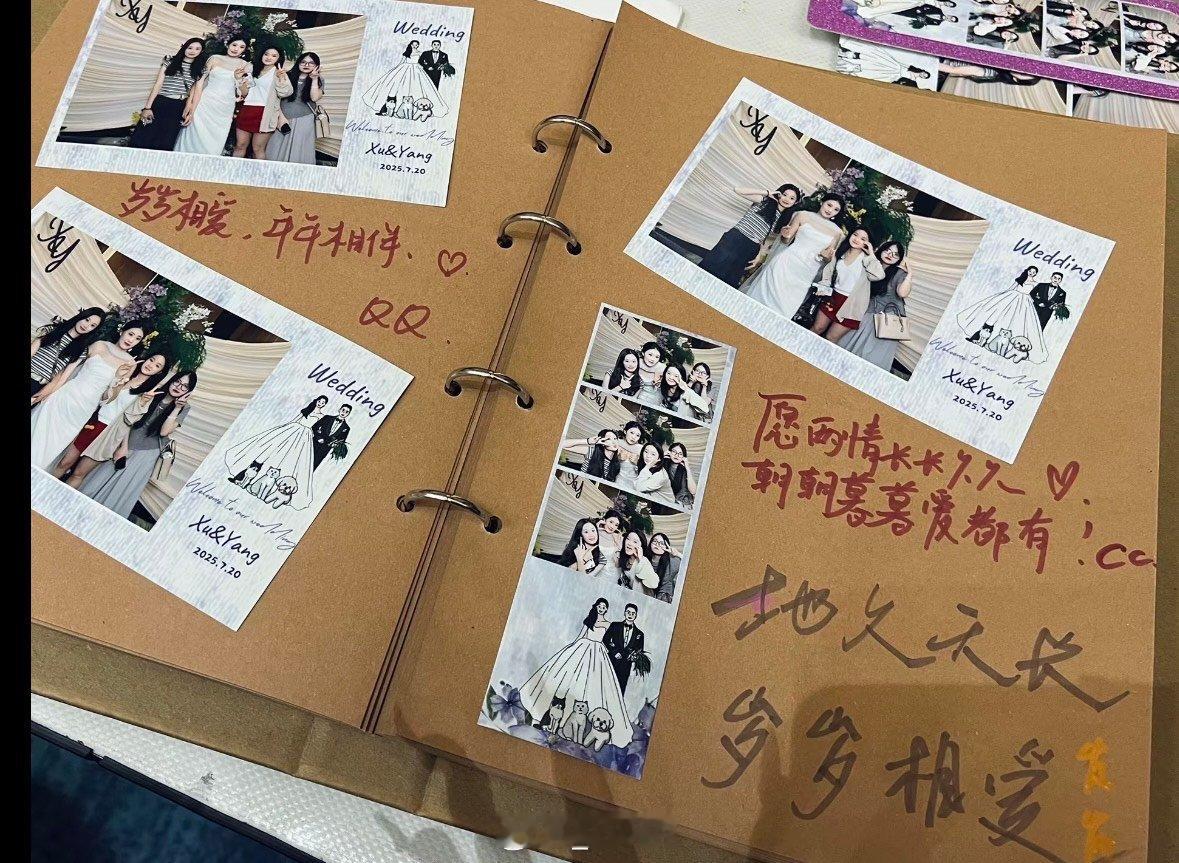 XY
Wedding
Welcome to our
Xu&Yang
2025.7.20
岁岁相爱，年年相伴、♡.
QQ
XY
Wedding
Welcome to our
Xu&Yang
2025.7.20
XY
Wedding
Welcome to our
Xu&Yang
2025.7.20
XY
XY
XY
愿两情长长久久 ♡.
朝朝暮暮爱都有！cc.
地久天长
岁岁相爱